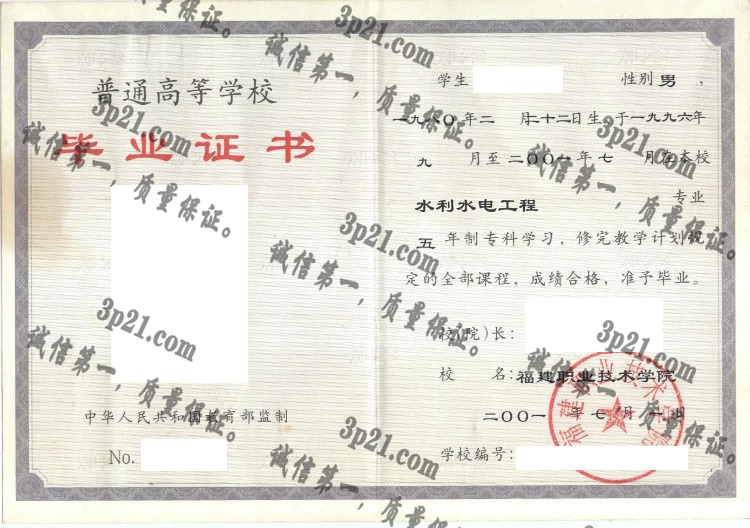 普通高等学校
毕业证书
中华人民共和国教育部监制
No.
学生 性别 男，
一九八〇年二月二十二日生于一九九六年
九月至二〇〇一年七月在本校
水利水电工程 专业
五年制专科学习，修完教学计划规
定的全部课程，成绩合格，准予毕业。
校(院)长：
校 名：福建职业技术学院
二〇〇一年七月一日
学校编号：
福建职业技术学院
3p21.com
诚信第一，质量保证。
3p21.com
诚信第一，质量保证。
3p21.com
诚信第一，质量保证。
3p21.com
诚信第一，质量保证。
3p21.com
诚信第一，质量保证。
3p21.com
诚信第一，质量保证。
3p21.com
诚信第一，质量保证。
3p21.com
诚信第一，质量保证。